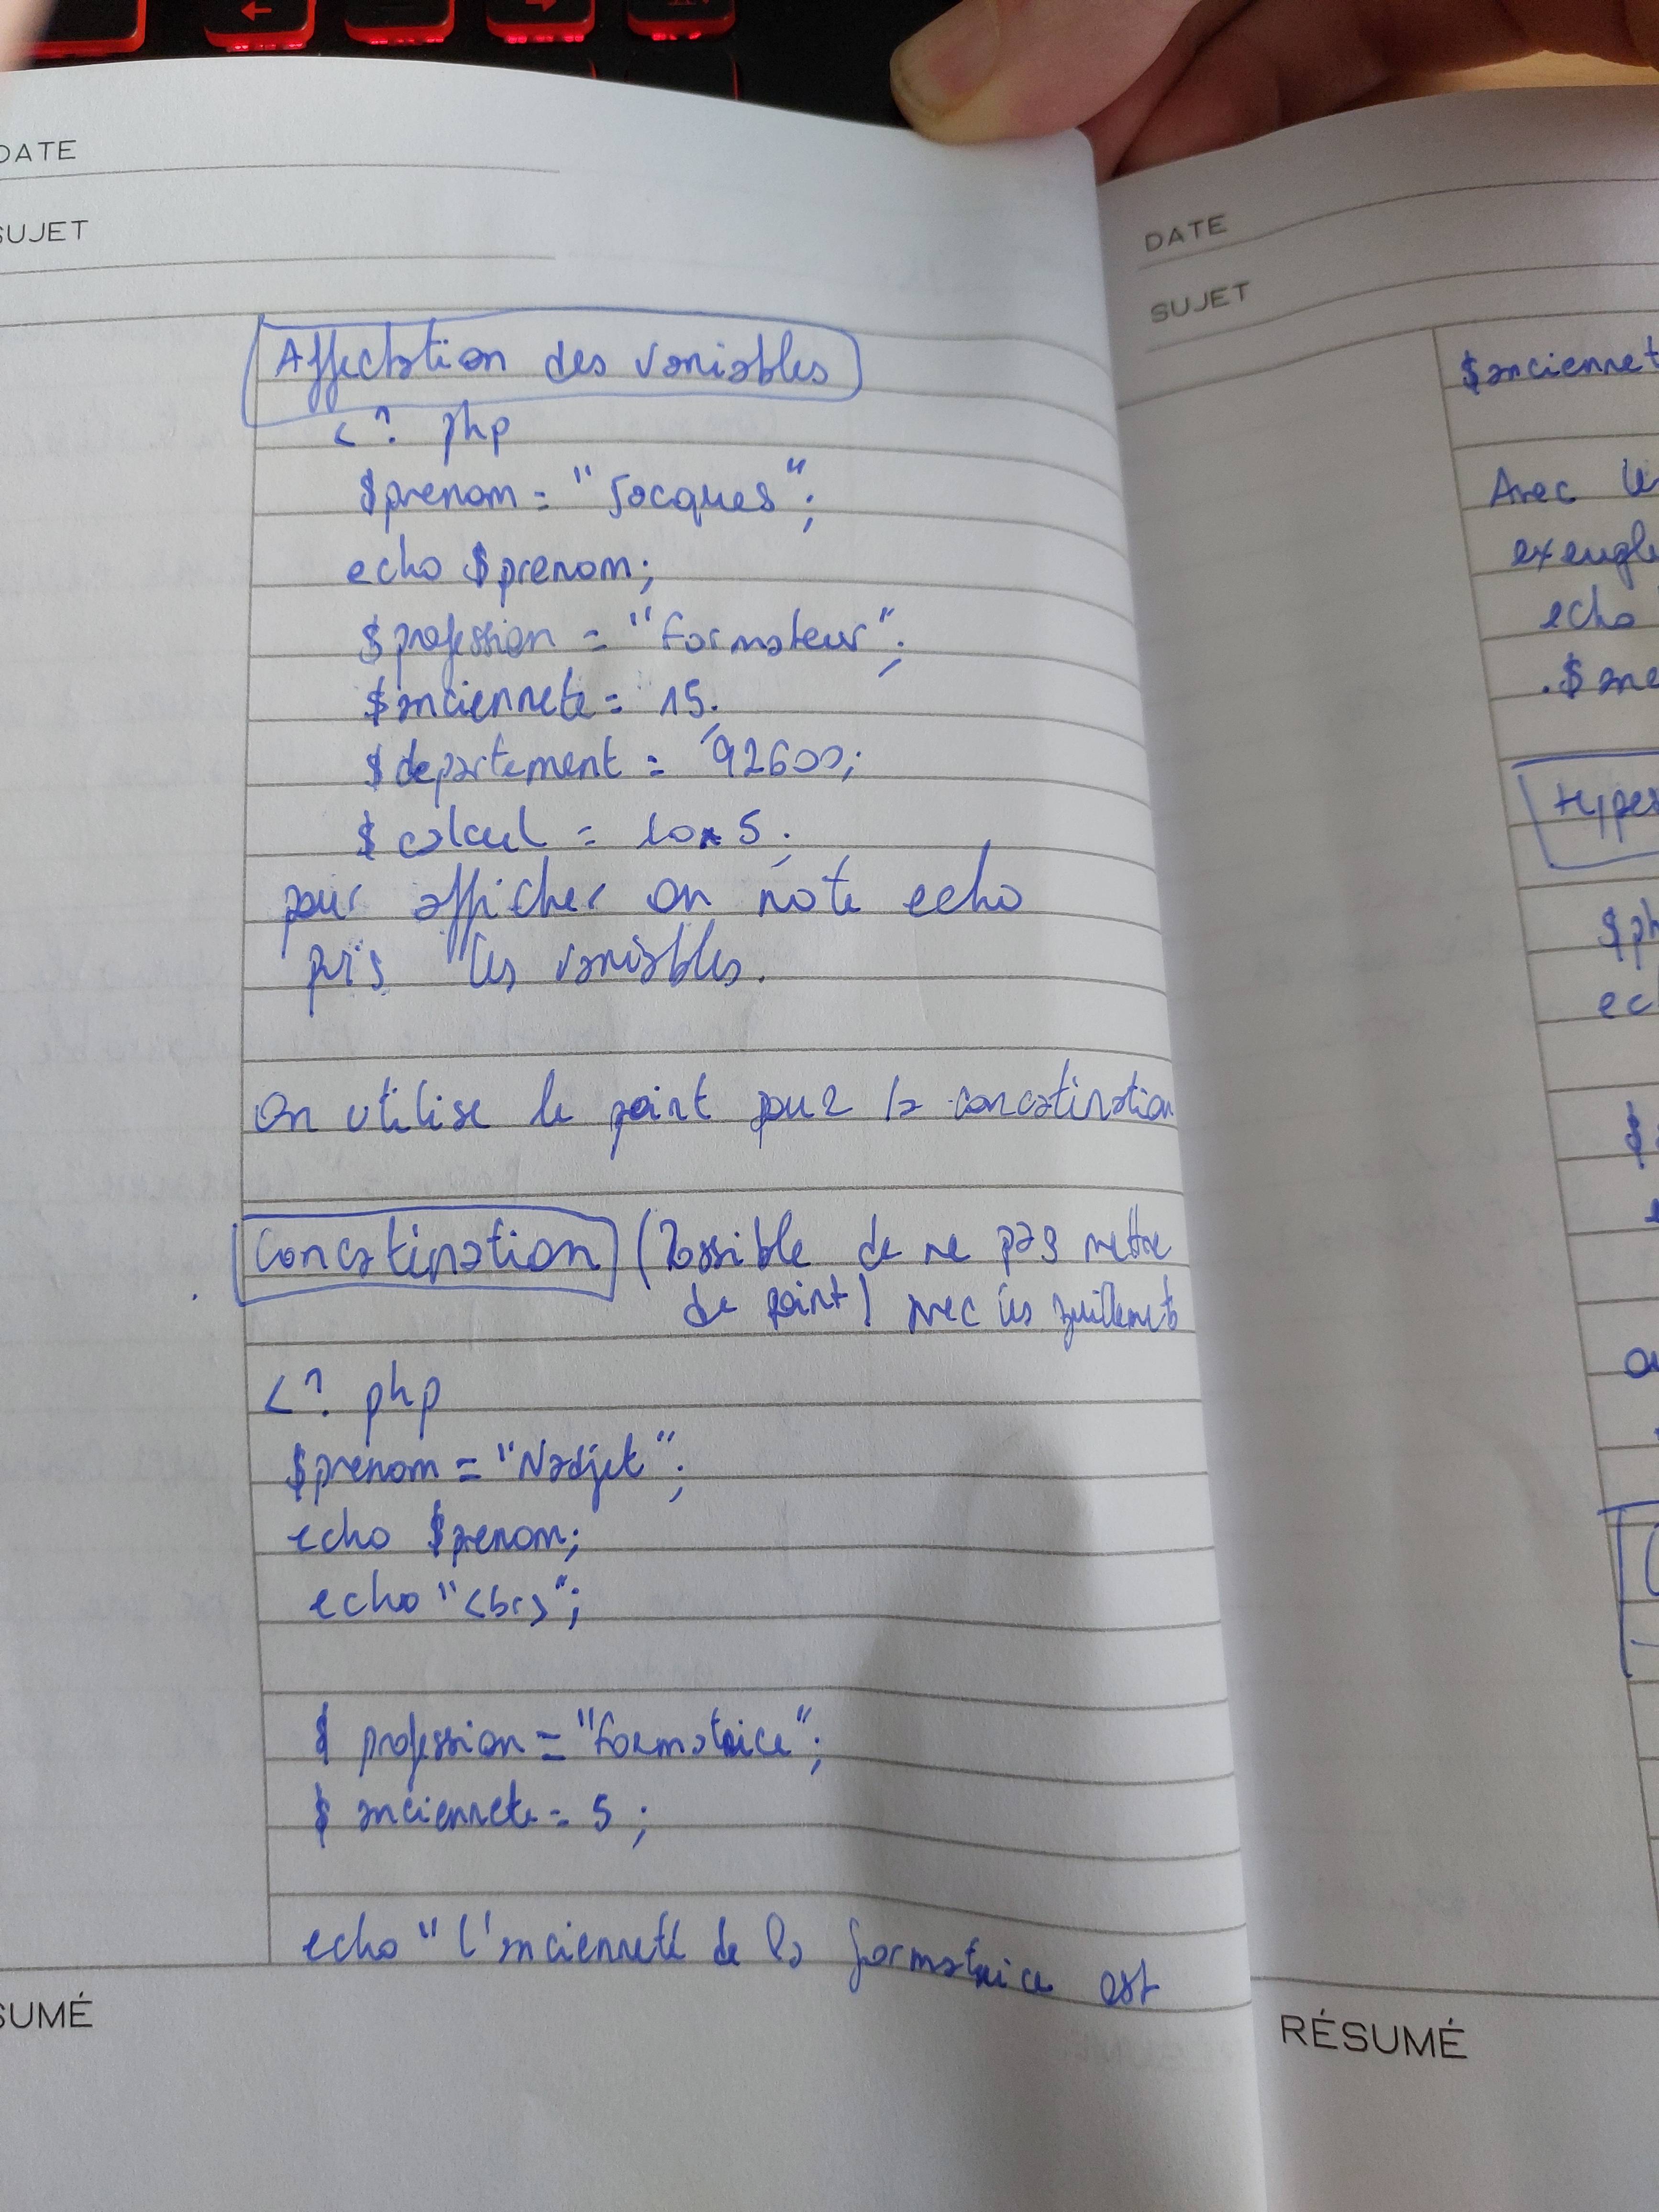 DATE
SUJET
Affectation des variables
<? php
$prenom = "Jacques";
echo $prenom;
$profession = "Formateur";
$anciennete = 15;
$departement = 92600;
$calcul = 10*5;
pour afficher on note echo
puis les variables.
On utilise le point pour la concatination
Concatination (Possible de ne pas mettre
de point) avec les guillemets
<? php
$prenom = "Nadjet";
echo $prenom;
echo "<br>";
$ profession = "Formatrice";
$ anciennete = 5 ;
echo "L'ancienneté de la formatrice est
SUMÉ
DATE
SUJET
$anciennet
Avec le
echo
.$anc
Hyper
$ph
ec
$
RÉSUMÉ